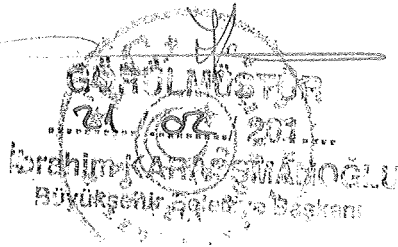 GÖRÜLMÜŞTÜR
21/02/201....
İbrahim KARAOSMANOĞLU
Büyükşehir Belediye Başkanı